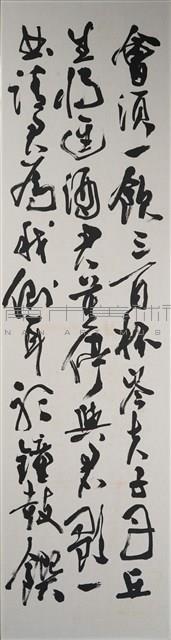 會須一飲三百杯岑夫子丹丘
生將進酒君莫停與君歌一
曲請君為我側耳聽鐘鼓饌